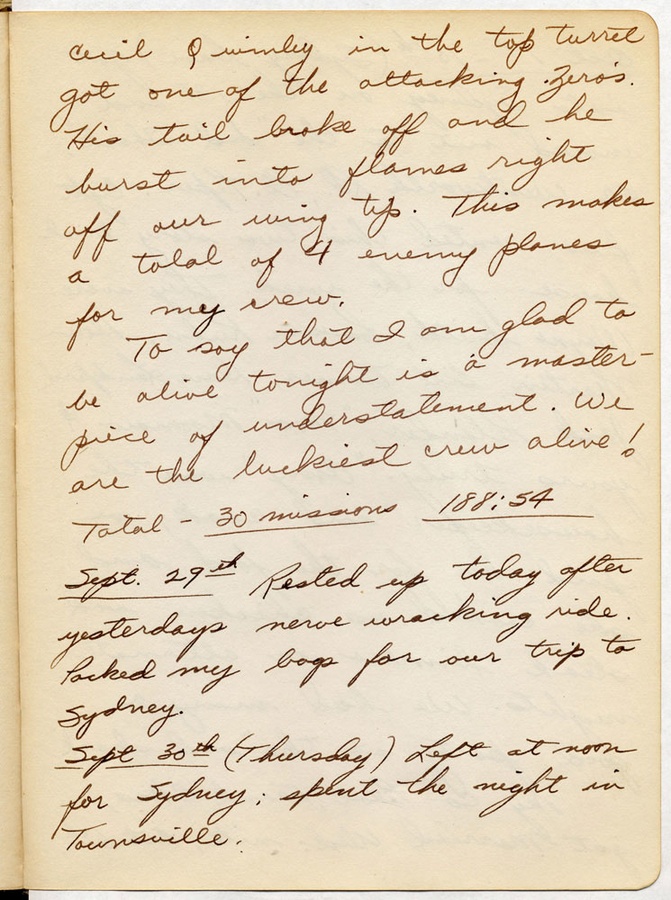 Cecil Quimley in the top turret
got one of the attacking Zero's.
His tail broke off and he
burst into flames right
off our wing tip. This makes
a total of 4 enemy planes
for my crew.
To say that I am glad to
be alive tonight is a master-
piece of understatement. We
are the luckiest crew alive!
Total - 30 missions 188:54
Sept. 29th Rested up today after
yesterdays nerve wracking ride.
Packed my bags for our trip to
Sydney.
Sept 30th (Thursday) Left at noon
for Sydney; spent the night in
Townsville.